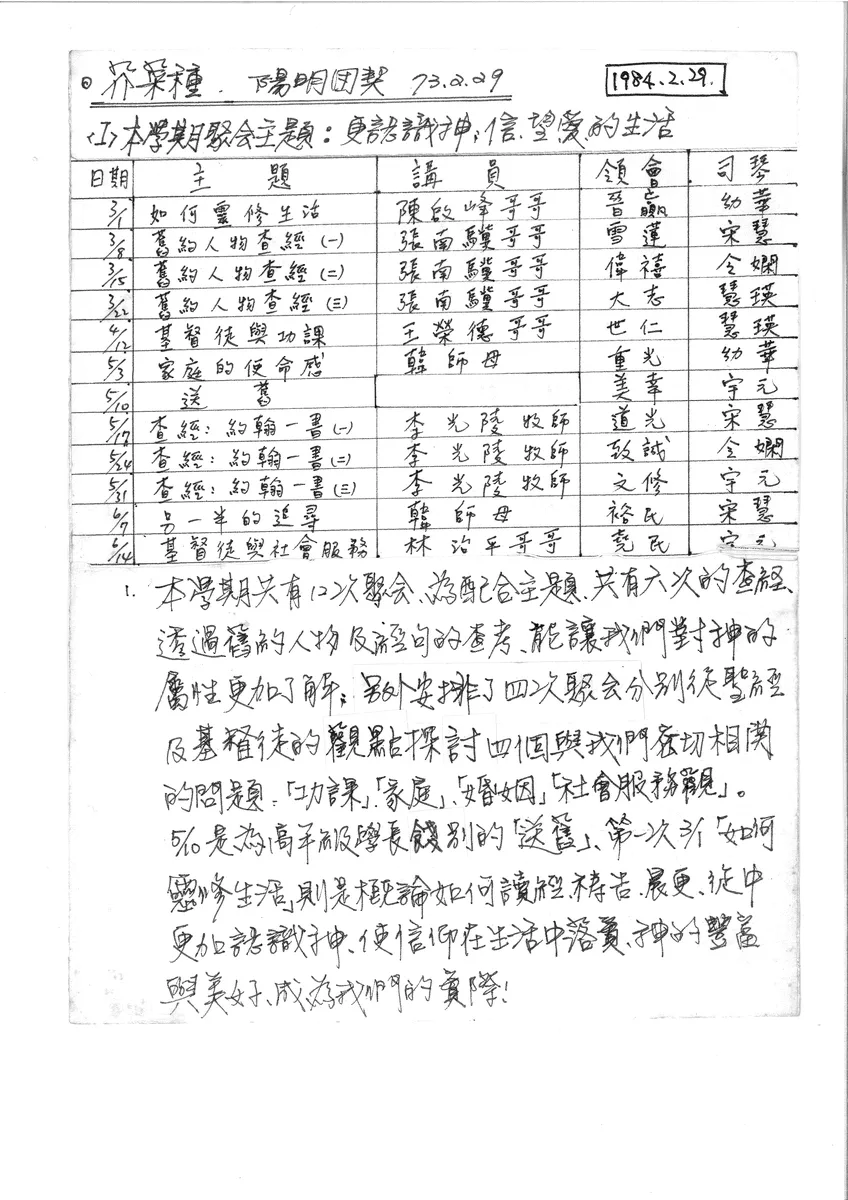 ◎ 芥菜種. 陽明团契 73.2.29 1984.2.29.
〈I〉本學期聚会主題：更認識神;信.望愛的生活
日期 主題 講員 領會 司琴
3/1 如何靈修生活 陳啟峰哥哥 晉嬴 幼華
3/8 舊約人物查經(一) 張南驥哥哥 雪蓮 宋慧
3/15 舊約人物查經(二) 張南驥哥哥 偉禧 令嫻
3/22 舊約人物查經(三) 張南驥哥哥 大志 慧瑛
4/12 基督徒與功課 王榮德哥哥 世仁 慧瑛
5/3 家庭的使命感 韓師母 重光 幼華
5/10 送舊 美幸 宇元
5/17 查經：約翰一書(一) 李光陵牧師 道光 宋慧
5/24 查經：約翰一書(二) 李光陵牧師 致誠 令嫻
5/31 查經：約翰一書(三) 李光陵牧師 文修 宇元
6/7 另一半的追尋 韓師母 裕民 宋慧
6/14 基督徒與社會服務 林治平哥哥 堯民 宇元
1. 本學期共有12次聚会、為配合主題.共有六次的查經、
透過舊約人物及經句的查考、能讓我們對神的
屬性更加了解;另外安排了四次聚会分別從聖經
及基督徒的觀點探討四個與我們密切相関
的問題.「功課」「家庭」、「婚姻」「社會服務觀」。
5/10是為高年級學長餞別的「送舊」、第一次3/1「如何
靈修生活」則是概論如何讀經.禱告.晨更、從中
更加認識神、使信仰在生活中落實、神的豐富
與美好、成為我們的實際!